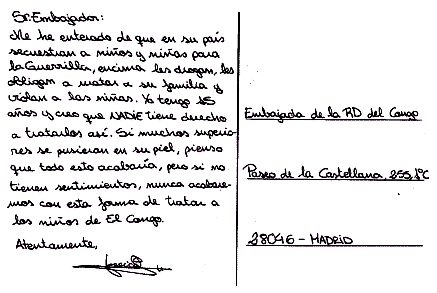 Sr. Embajador:
Me he enterado de que en su país
secuestran a niños y niñas para
la Guerrilla, encima les drogan, les
obligan a matar a su familia y
violan a las niñas. Yo tengo 15
años y creo que NADIE tiene derecho
a tratarlos así. Si muchos superio-
res se pusieran en su piel, pienso
que todo esto acabaría, pero si no
tienen sentimientos, nunca acabare-
mos con esta forma de tratar a
los niños de El Congo.
Atentamente,
Embajada de la RD del Congo
Paseo de la Castellana, 255, 1ºC
28046 - MADRID